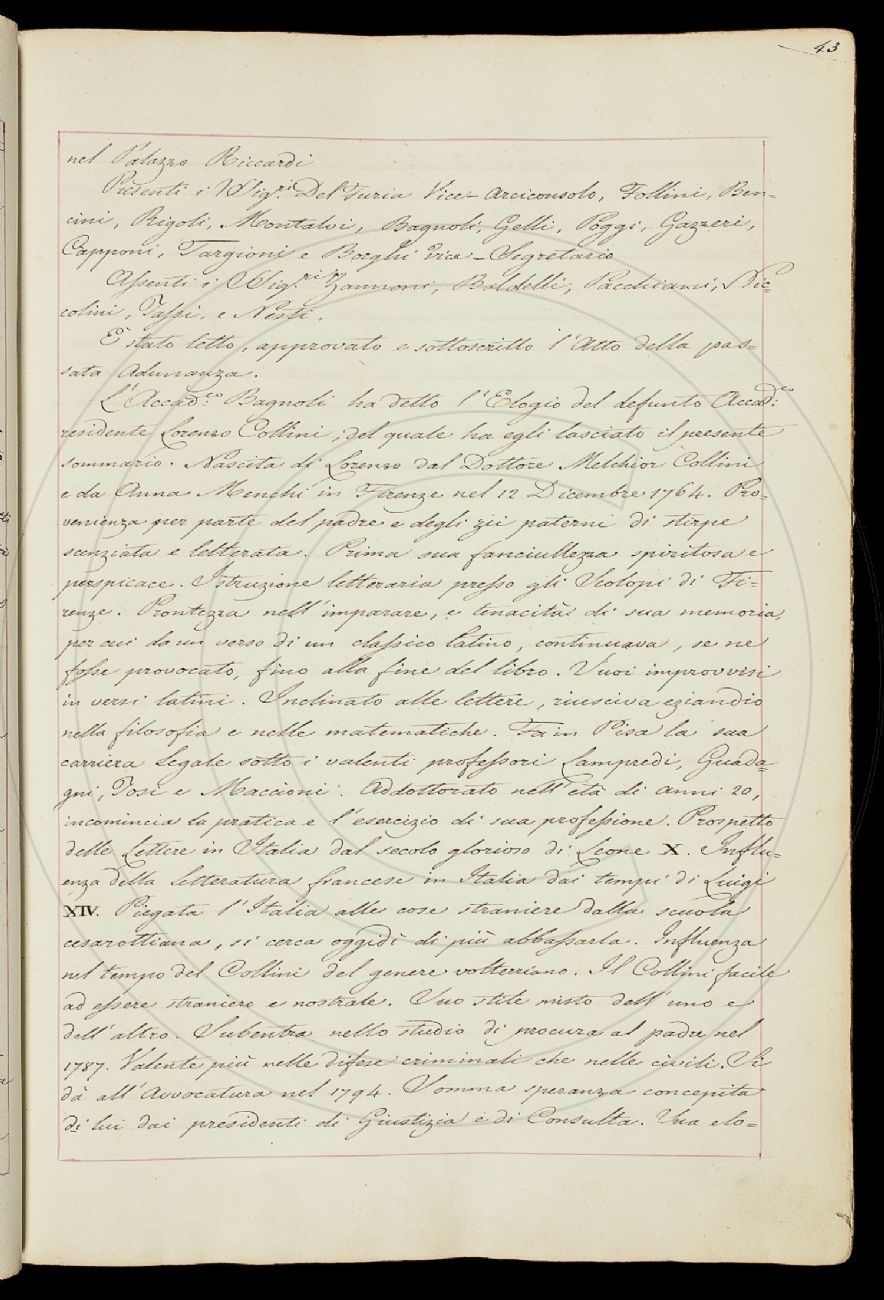 43
nel Palazzo Riccardi
Presenti i SSig.ri Del Furia Vice-Arciconsolo, Follini, Ben-
cini, Rigoli, Montalvi, Bagnoli, Gelli, Poggi, Gazzeri,
Capponi, Targioni e Borghi Vice-Segretario
Assenti i SSig.ri Zannoni, Baldelli, Pacchiani, Nic=
colini, Tassi, e Nesti.
È stato letto, approvato e sottoscritto l'Atto della pas=
sata Adunanza.
L'Accad:co Bagnoli ha detto l'Elogio del defunto Accad:co
residente Lorenzo Collini, del quale ha egli lasciato il presente
sommario. Nascita di Lorenzo dal Dottore Melchior Collini
e da Anna Menchi in Firenze nel 12 Dicembre 1764. Pro-
venienza per parte del padre e degli zii paterni di stirpe
scenziata e letterata. Prima sua fanciullezza spiritosa e
perspicace. Istruzione letteraria presso gli Scolopi di Fi-
renze. Prontezza nell'imparare, e tenacità di sua memoria,
per cui da un verso di un classico latino, continuava, se ne
fosse provocato, fino alla fine del libro. Suoi improvvisi
in versi latini. Inclinato alle lettere, riusciva eziandio
nella filosofia e nelle matematiche. Fa in Pisa la sua
carriera legale sotto i valenti professori Lampredi, Guada=
gni, Tosi e Maccioni. Addottorato nell'età di anni 20,
incomincia la pratica e l'esercizio di sua professione. Prospetto
delle Lettere in Italia dal secolo glorioso di Leone X. Influ-
enza della letteratura francese in Italia dai tempi di Luigi
XIV. Piegata l'Italia alle cose straniere dalla scuola
cesarottiana, si cerca oggidì di più abbassarla. Influenza
nel tempo del Collini del genere volteriano. Il Collini facile
ad essere straniero e nostrale. Suo stile misto dell'uno e
dell'altro. Subentra nello studio di procura al padre nel
1787. Valente più nelle difese criminali che nelle civili. Si
dà all'Avvocatura nel 1794. Somma speranza concepita
di lui dai presidenti di Giustizia e di Consulta. Sua elo-